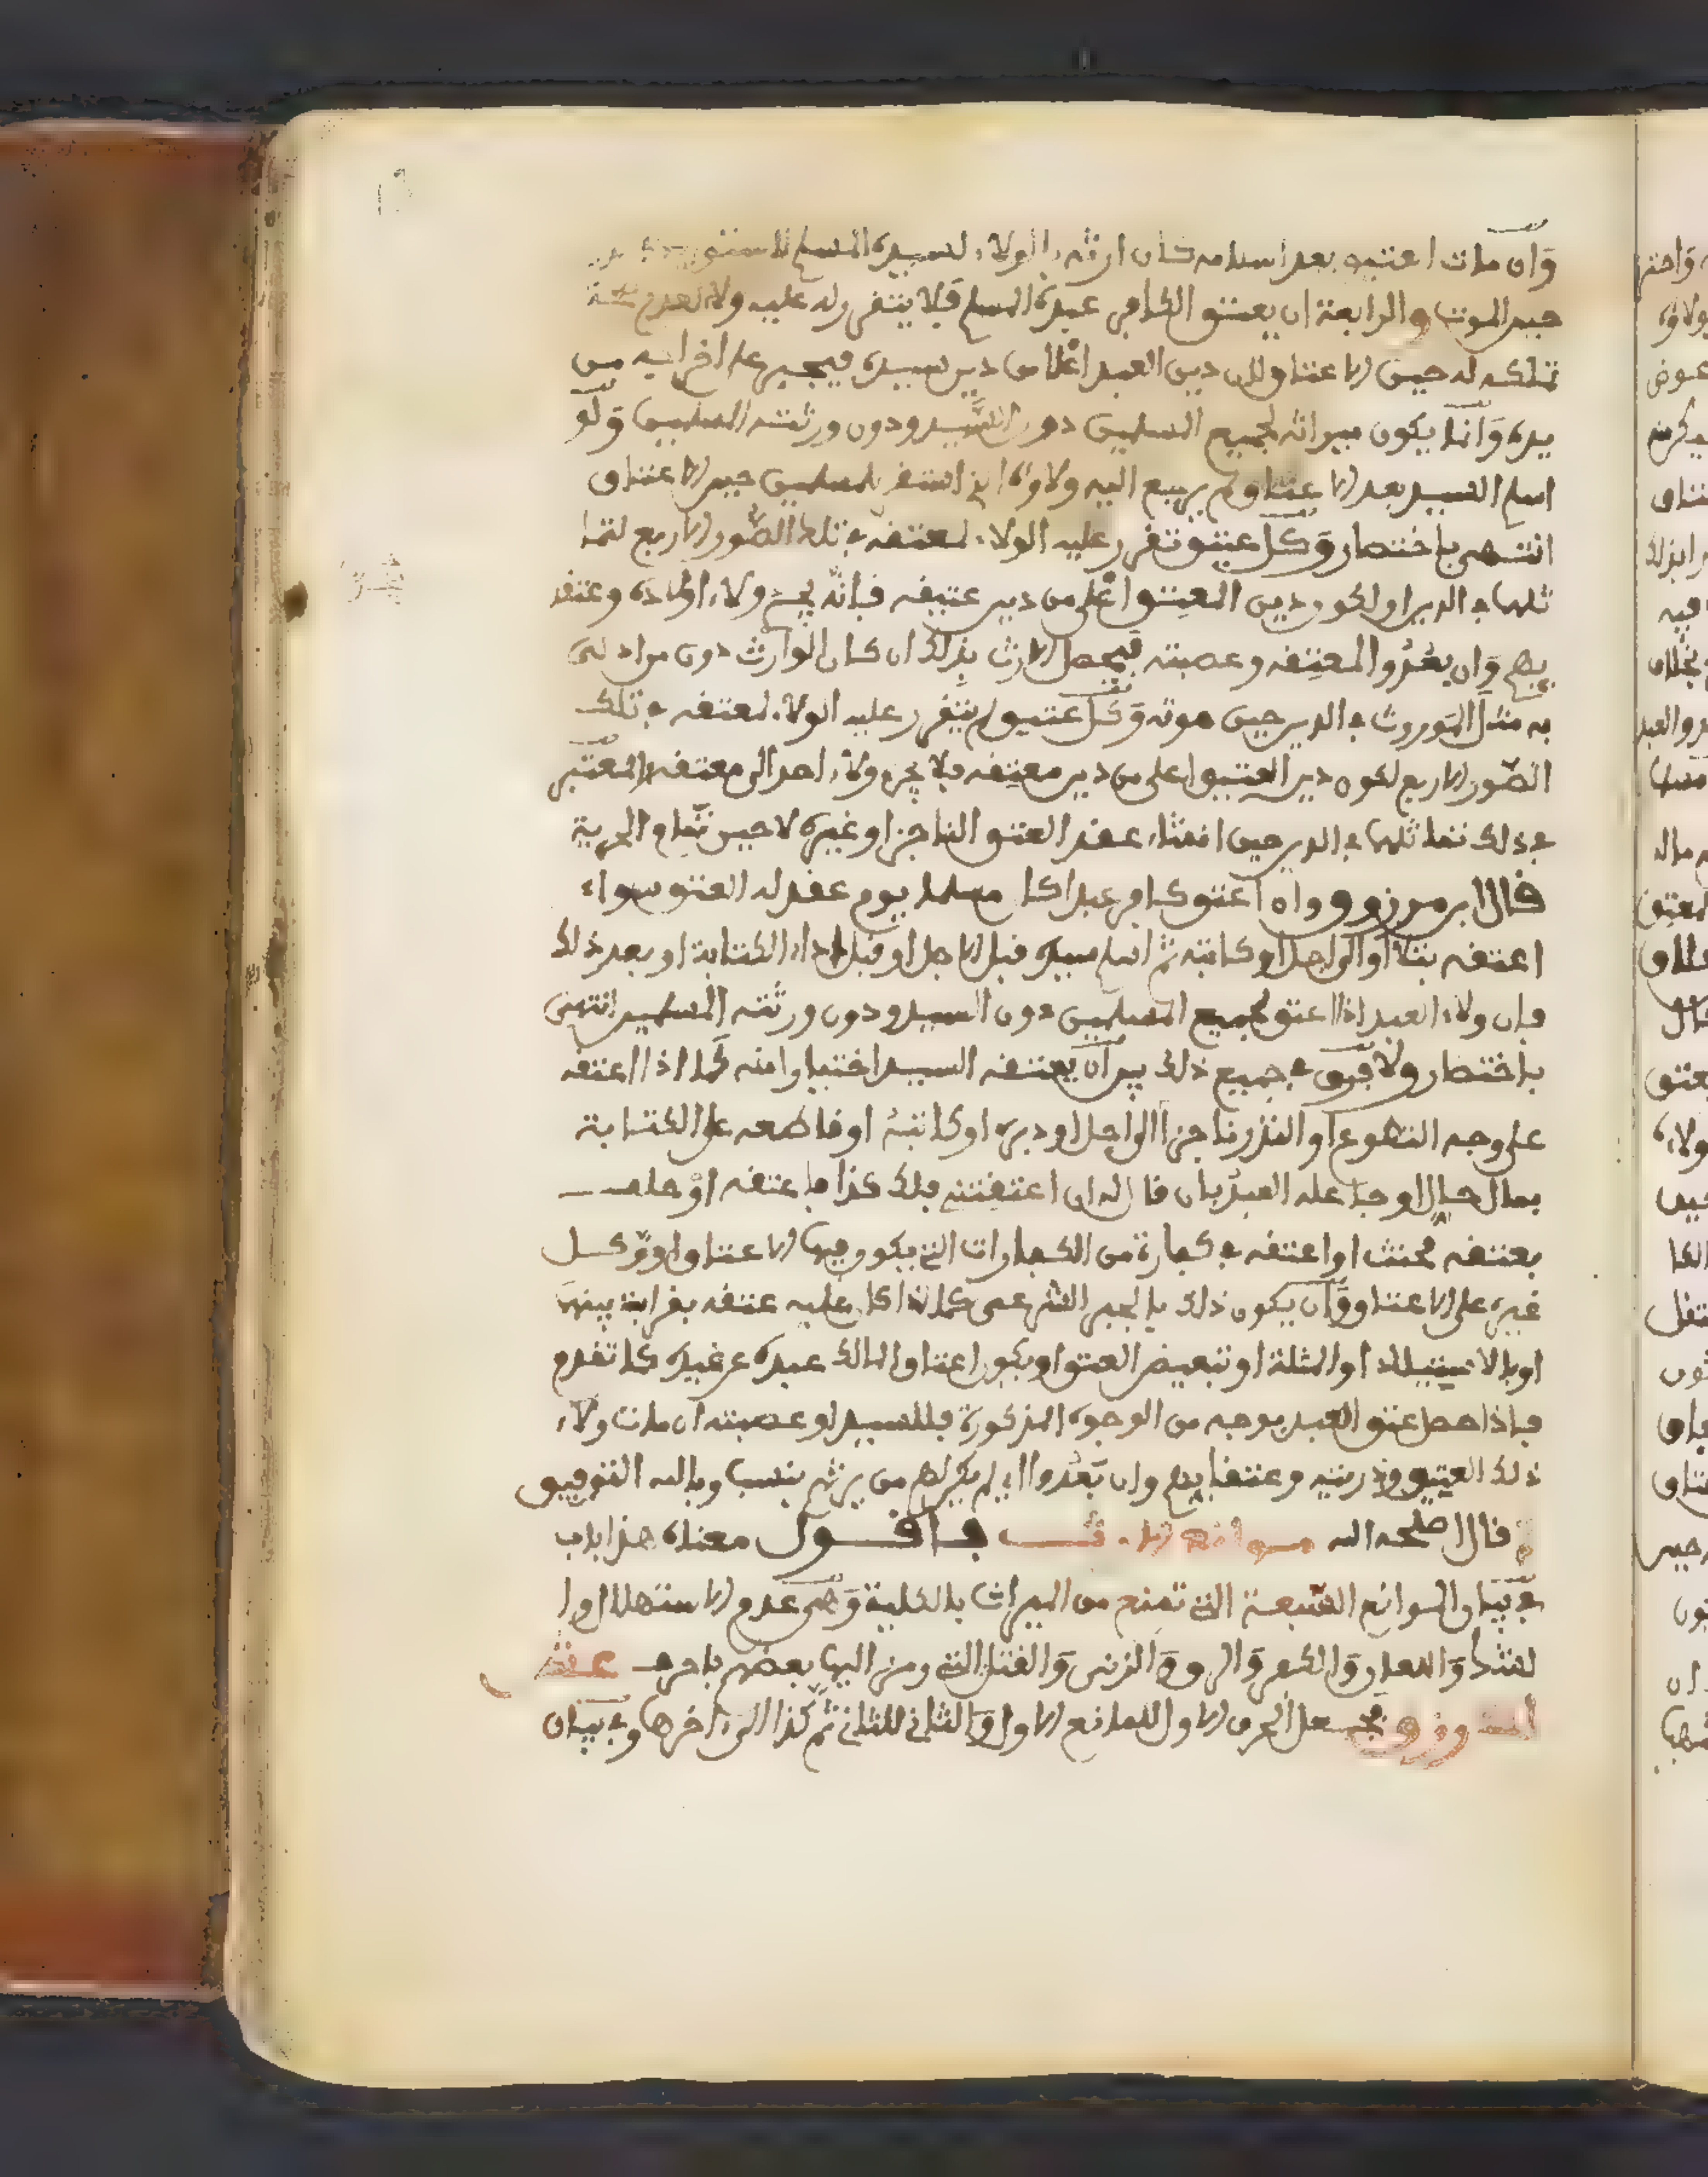 وان مات عتيقه بعد اسلامه كان ارثه بالولاء لسيده المسلم
حين الموت والرابعة ان يعتق الكافر عبده المسلم فلا يتقرر له عليه ولاء لعدم صحة
تملكه له حين الاعتاق ولان دين العبد اعلا من دين سيده فيجبر على اخراجه من
يده وانما يكون ميراثه لجميع المسلمين دون السيد ودون ورثته المسلمين ولو
اسلم السيد بعد الاعتاق لم يرجع اليه ولاؤه اذ استقر للمسلمين حين الاعتاق
انتهى باختصار وكل عتيق تقرر عليه الولاء لمعتقه في تلك الصور الاربع لتما
ثلهما في الدين او لكون دين المعتق اعلى من دين عتيقه فانه يجر ولاء اولاده وعتقا
يهم وان بعدوا لمعتقه وعصبته فيحصل الارث بذلك ان كان الوارث دون من ادلى
به مثل الموروث في الدين حين موته وكل عتيق لم يتقرر عليه الولاء لمعتقه في تلك
الصور الاربع لكون دين العتيق اعلى من دين معتقه فلا يجر ولاء احد الى معتقه والمعتبر
في ذلك تماثلهما في الدين حين انشاء عقد العتق الناجز او غيره لا حين تمام الحرية
قال ابن مرزوق وان اعتق كافر عبدا كان مسلما يوم عقد له العتق سواء
اعتقه بتلا او الى اجل او كاتبه ثم اسلم سيده قبل الاجل او قبل اداء الكتابة او بعد ذلك
فان ولاء العبد اذا اعتق لجميع المسلمين دون السيد ودون ورثته المسلمين انتهى
باختصار ولا فرق في جميع ذلك بين ان يعتقه السيد اختيارا منه كما اذا اعتقه
على وجه التطوع او النذر ناجزا او الى اجل او دبره او كاتبه او قاطعه على الكتابة
بمال حال او جاعله العبد بان قال له ان اعتقتني فلك كذا فاعتقه او حلف
بعتقه فحنث او اعتقه في كفارة من الكفارات التي يكون فيها الاعتاق او وكل
غيره على الاعتاق وان يكون ذلك بالجبر الشرعي كما اذا كان عليه عتقه بقرابة بينهما
او بالاستيلاد او المثلة او تبعيض العتق او يكون اعتاق المالك عبده عن غيره كما تقدم
فاذا حصل عتق العبد بوجه من الوجوه المذكورة فللسيد او عصبته ان مات ولاء
ذلك العتيق وذريته وعتقايهم وان بعدوا اي لم يكن لهم من يرثهم بنسب وبالله التوفيق
قال اصلحه الله موانع الارث فاقول معناه هذا باب
في بيان الموانع السبعة التي تمنع من الميراث بالكلية وهي عدم الاستهلال وا
لشك واللعان والكفر والرق والزنى والقتل التي رمز اليها بعضهم باحرف عش
لك رزق فجعل الحرف الاول للمانع الاول والثاني للثاني ثم كذا الى اخرها وفي بيان